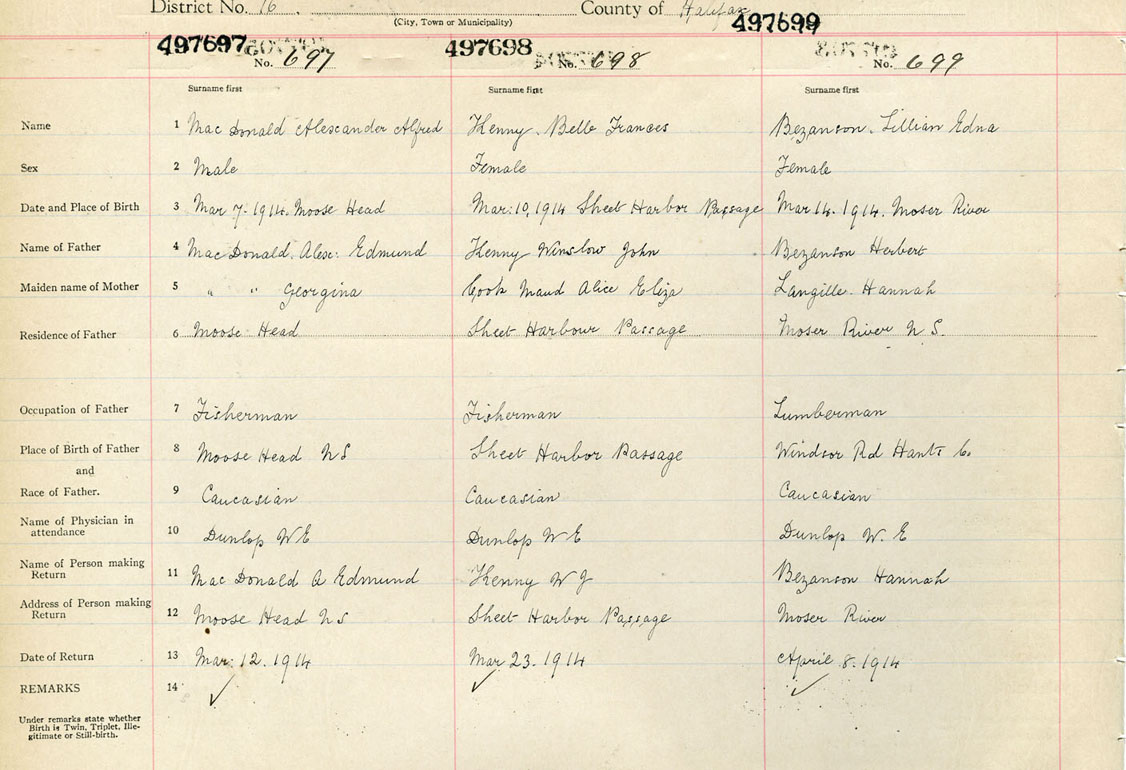 District No. 16 County of Halifax
(City, Town or Municipality)
497697 497698 497699
No. 697 No. 698 No. 699
Surname first Surname first Surname first
Name 1 Mac Donald Alexander Alfred Kenny Belle Frances Bezanson Lillian Edna
Sex 2 Male Female Female
Date and Place of Birth 3 Mar 7-1914. Moose Head Mar: 10, 1914 Sheet Harbor Passage Mar 14. 1914. Moser River
Name of Father 4 Mac Donald. Alex: Edmund Kenny Winslow John Bezanson Herbert
Maiden name of Mother 5 " " Georgina Cook Maud Alice Eliza Langille. Hannah
Residence of Father 6 Moose Head Sheet Harbour Passage Moser River N S.
Occupation of Father 7 Fisherman Fisherman Lumberman
Place of Birth of Father 8 Moose Head N S Sheet Harbor Passage Windsor Rd Hants Co.
and
Race of Father. 9 Caucasian Caucasian Caucasian
Name of Physician in
attendance 10 Dunlop W E Dunlop W E Dunlop W. E
Name of Person making
Return 11 Mac Donald A Edmund Kenny W J Bezanson Hannah
Address of Person making
Return 12 Moose Head N S Sheet Harbor Passage Moser River
Date of Return 13 Mar: 12. 1914 Mar 23. 1914 April 8. 1914
REMARKS 14 ✓ ✓ ✓
Under remarks state whether
Birth is Twin, Triplet, Ille-
gitimate or Still-birth.